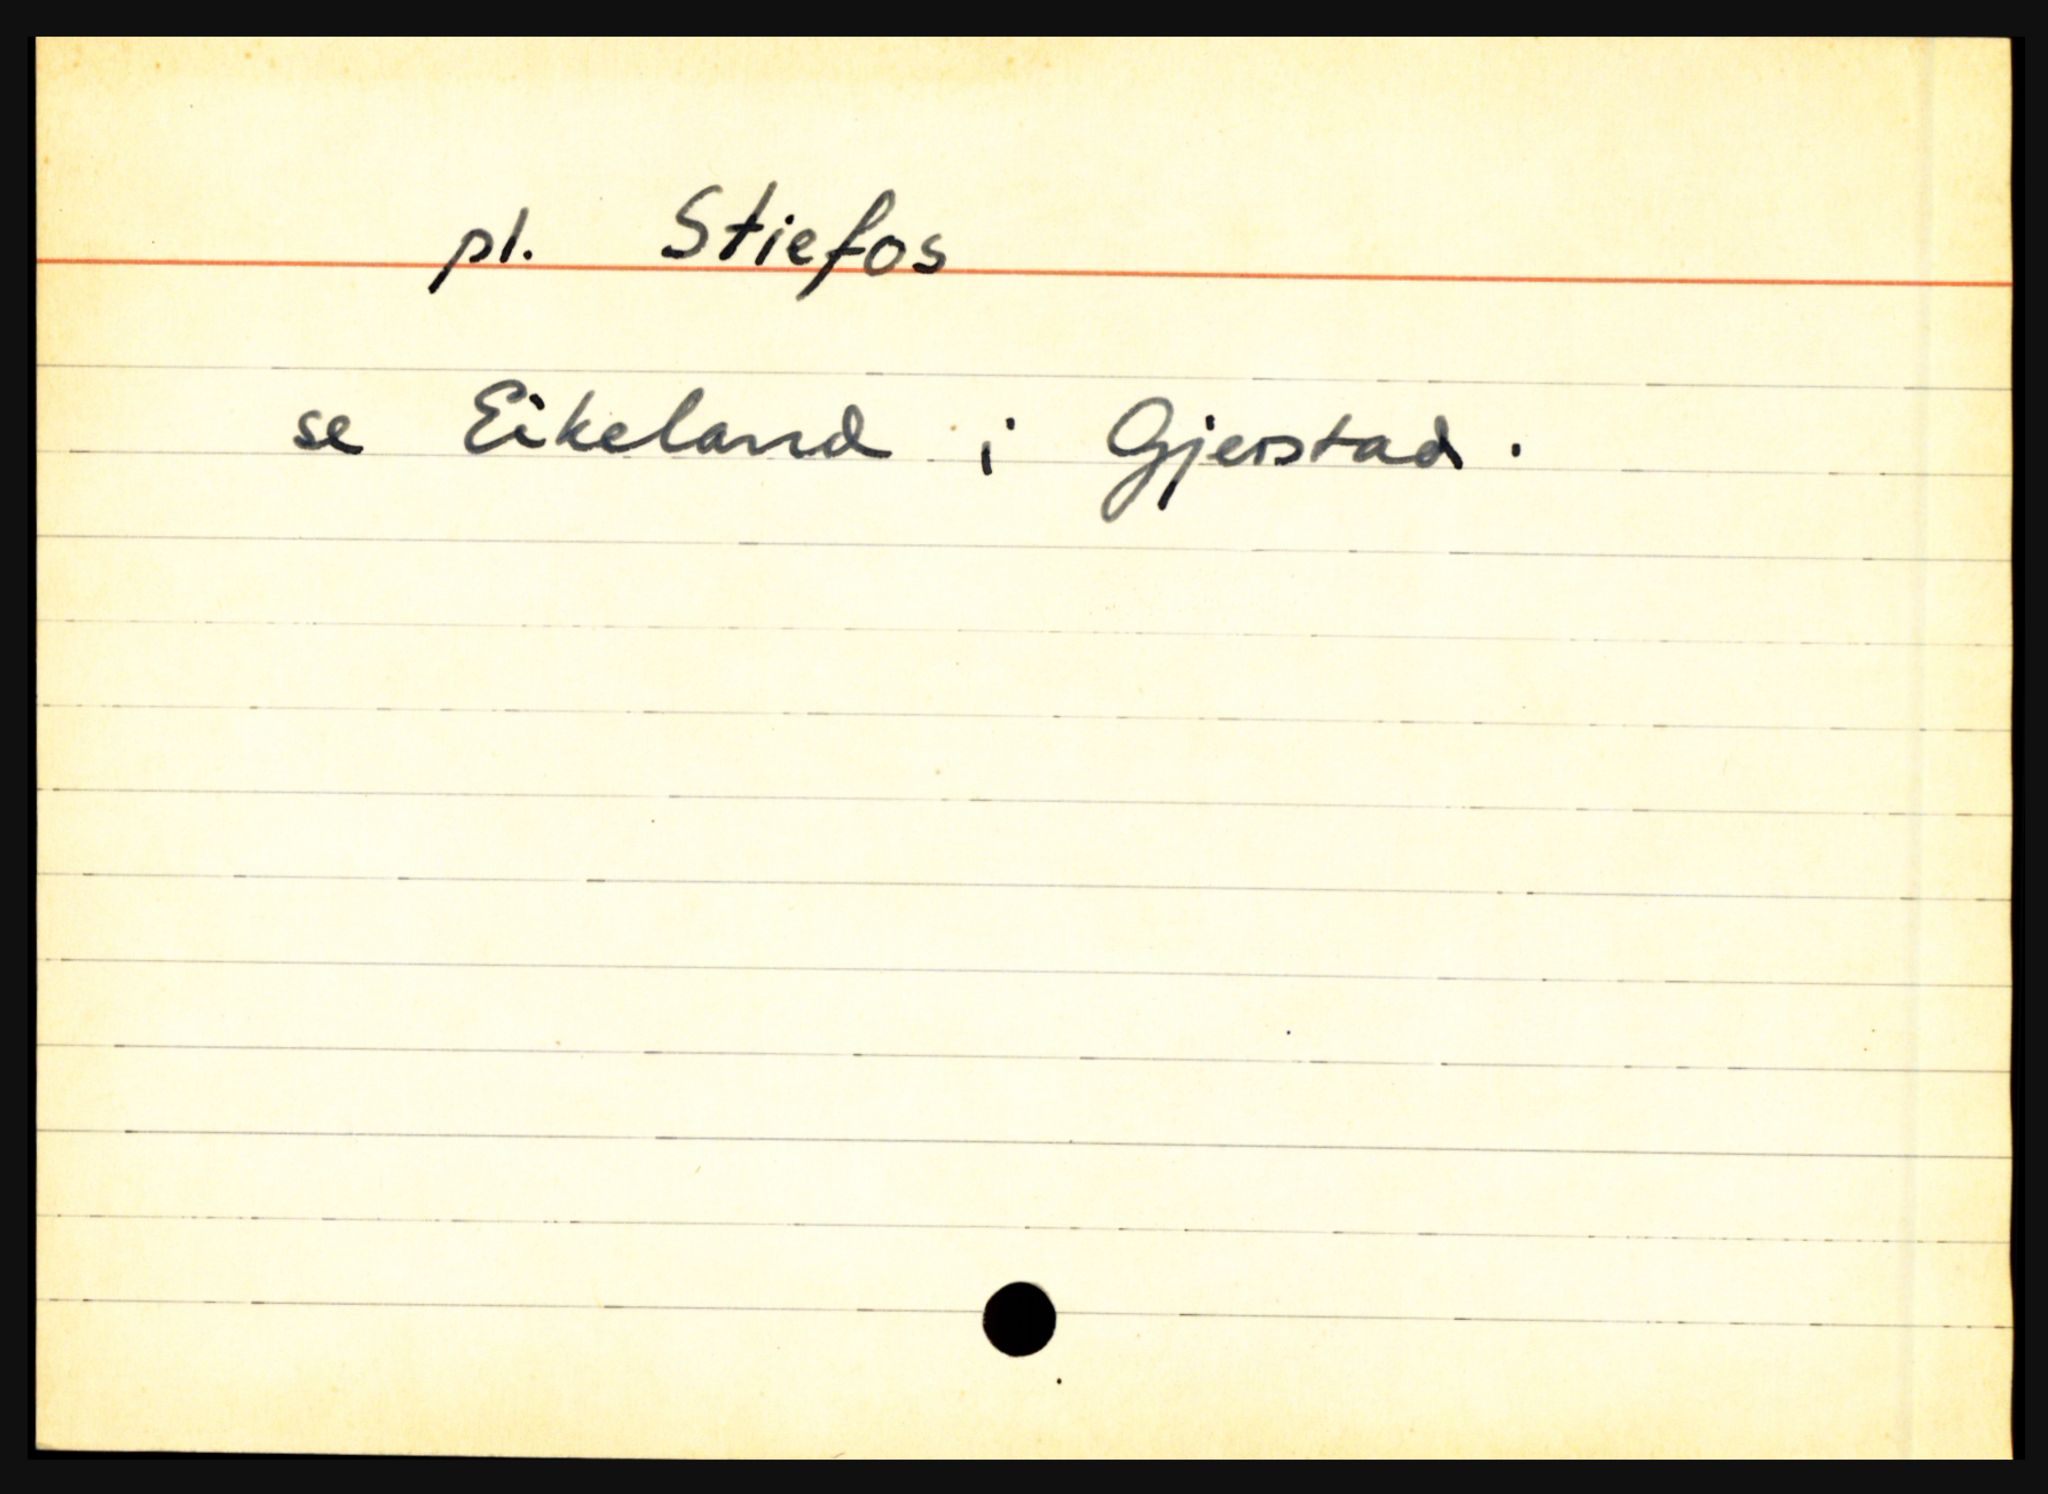 pl. Stiefos
se Eikeland i Gjerstad.